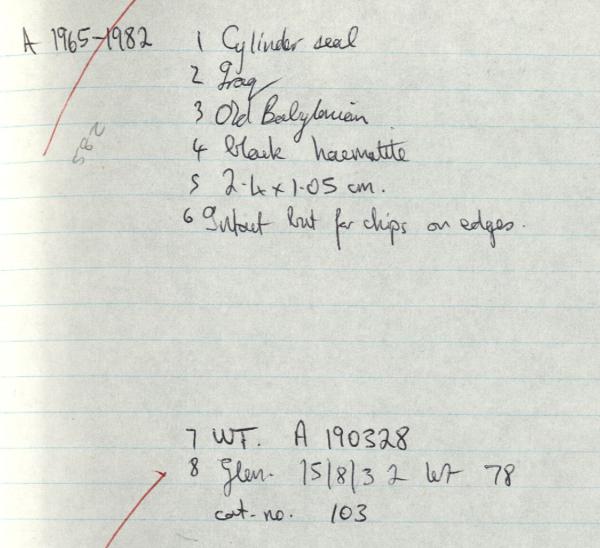 A 1965-1982 1 Cylinder seal
2 Iraq
3 Old Babylonian
582
4 black haematite
5 2.4 x 1.05 cm.
6 Intact but for chips on edges.
7 WT. A 190328
8 Glen. 15/8/32 lot 78
cat. no. 103